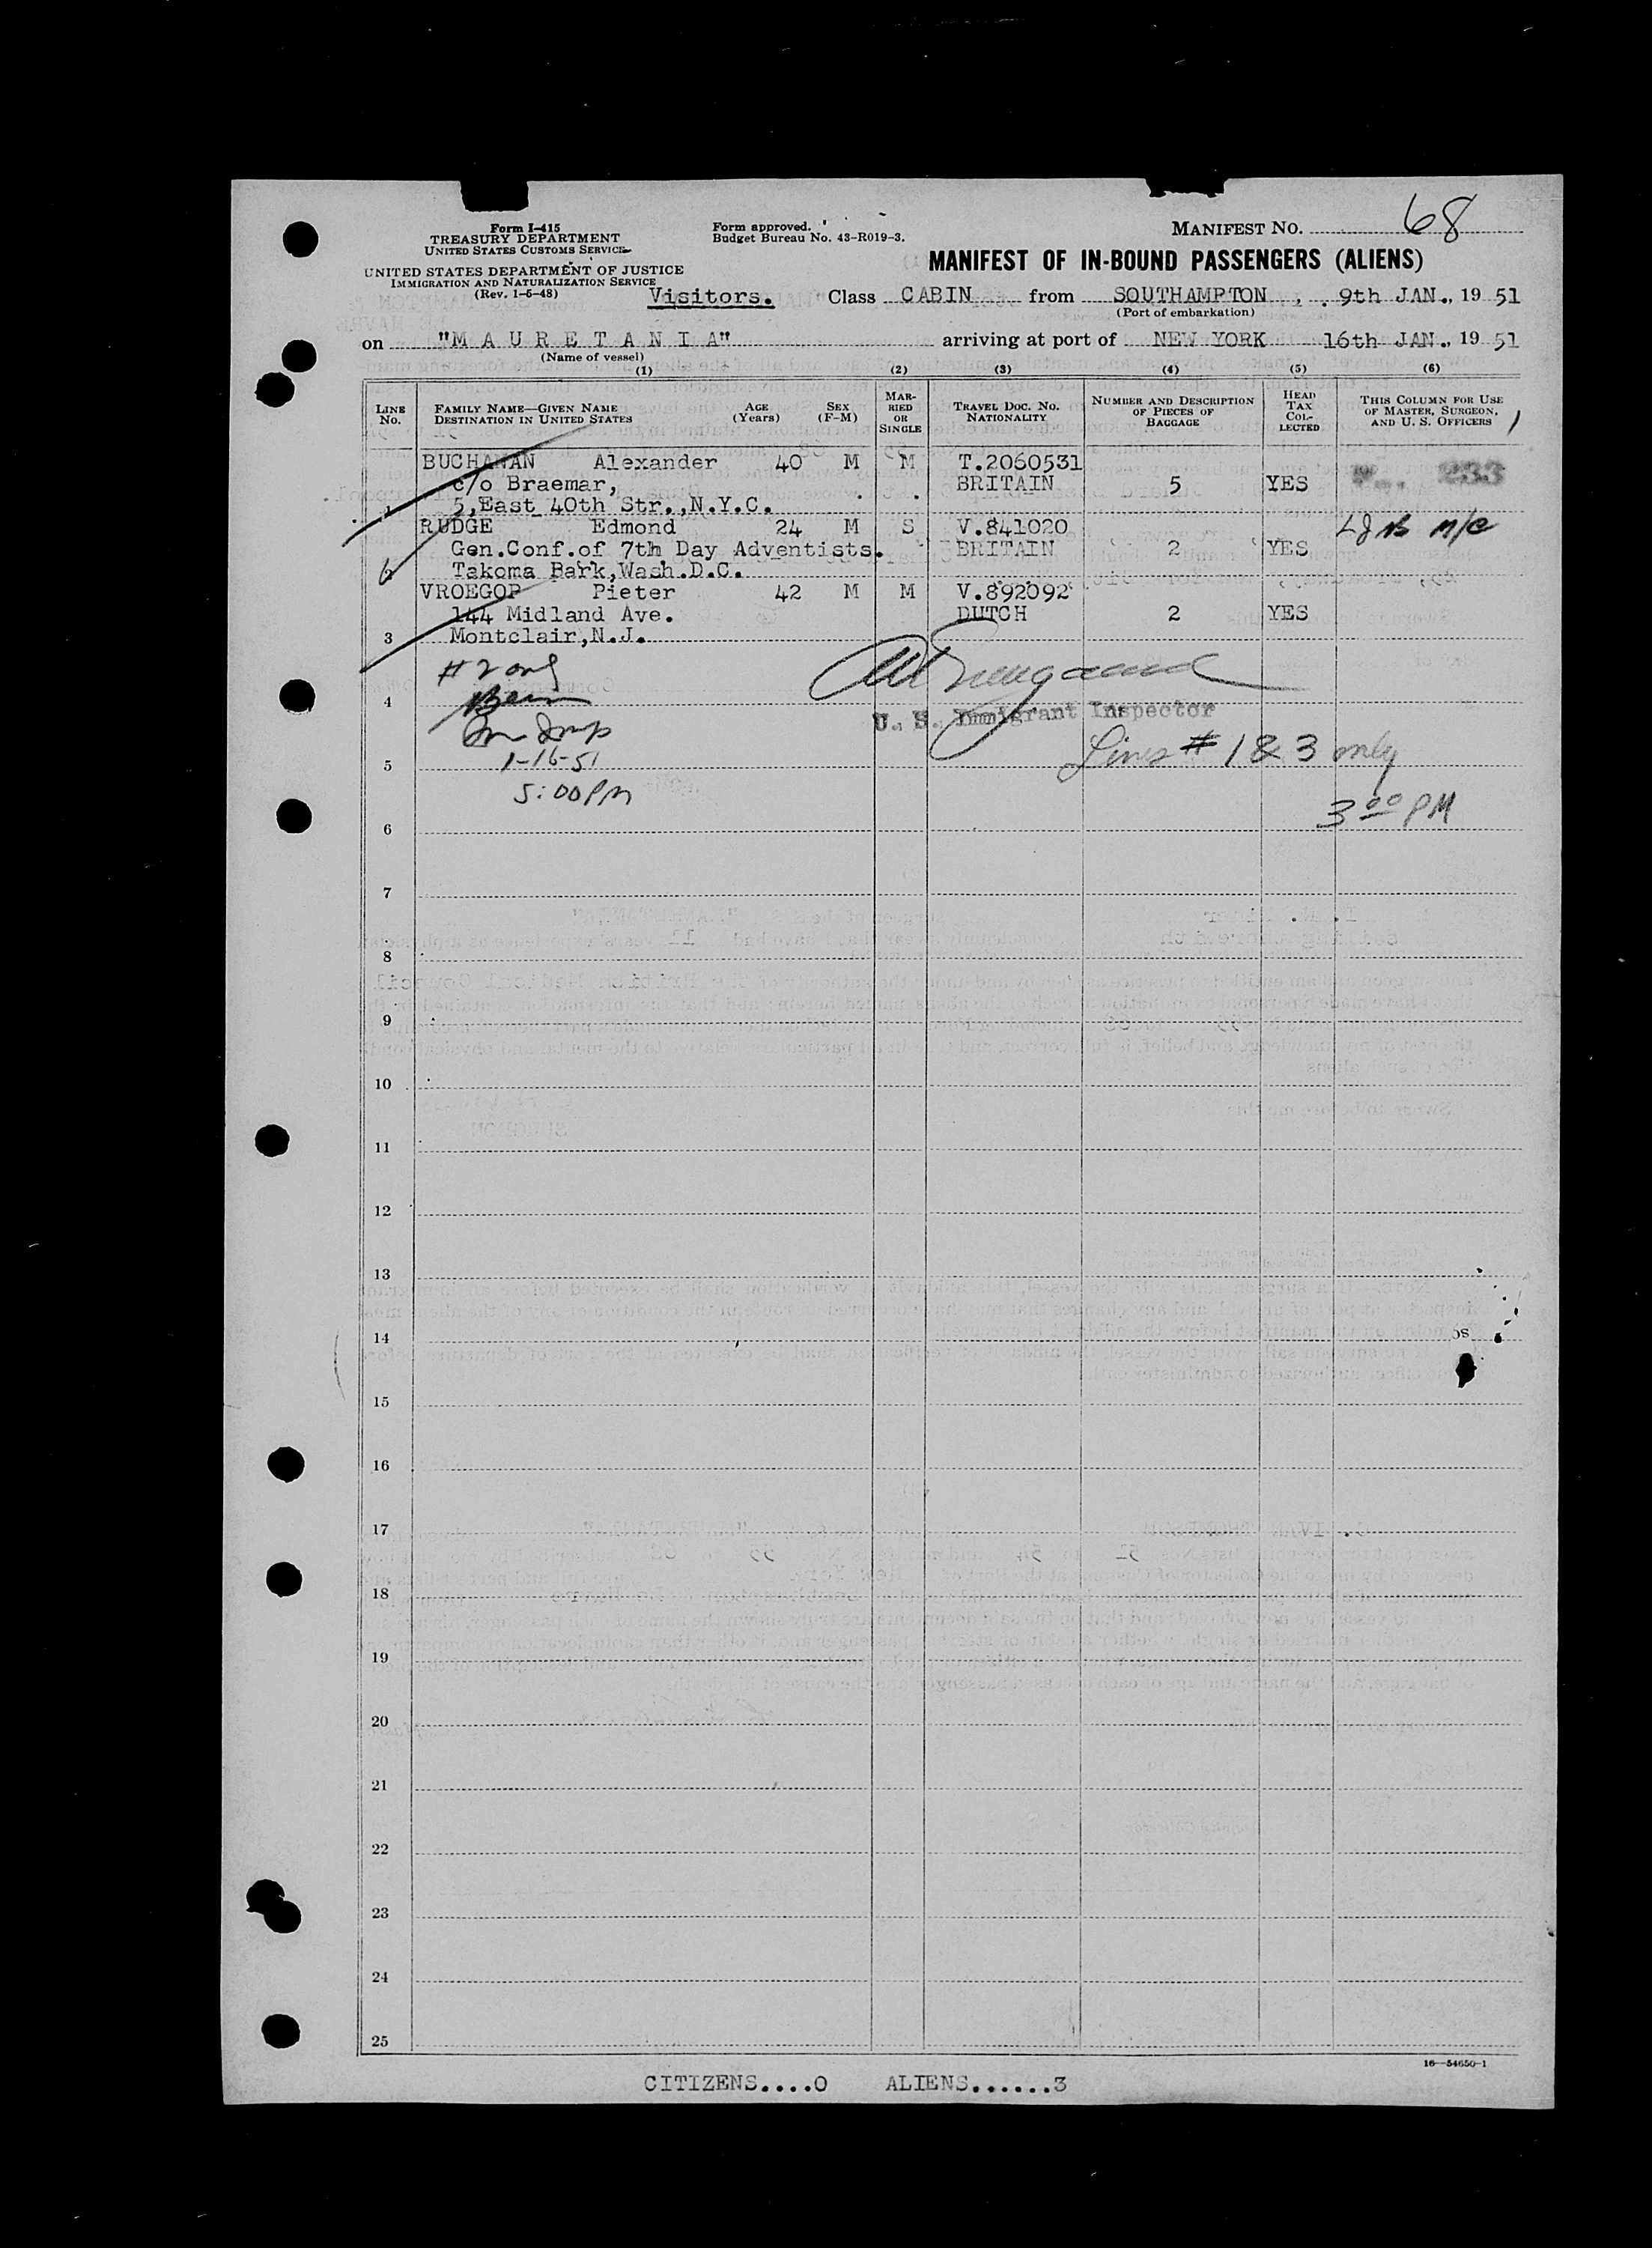 Form I-415
TREASURY DEPARTMENT
UNITED STATES CUSTOMS SERVICE
UNITED STATES DEPARTMENT OF JUSTICE
IMMIGRATION AND NATURALIZATION SERVICE
(Rev. 1-5-48)
Form approved.
Budget Bureau No. 43-R019-3.
MANIFEST NO. 68
MANIFEST OF IN-BOUND PASSENGERS (ALIENS)
Visitors. Class CABIN from SOUTHAMPTON, 9th JAN., 19 51
(Port of embarkation)
on "M A U R E T A N I A" arriving at port of NEW YORK 16th JAN., 19 51
(Name of vessel)
(1) (2) (3) (4) (5) (6)
LINE No. FAMILY NAME—GIVEN NAME DESTINATION IN UNITED STATES AGE (Years) SEX (F-M) MARRIED OR SINGLE TRAVEL DOC. NO. NATIONALITY NUMBER AND DESCRIPTION OF PIECES OF BAGGAGE HEAD TAX COLLECTED THIS COLUMN FOR USE OF MASTER, SURGEON, AND U. S. OFFICERS
BUCHANAN Alexander 40 M M T.2060531
c/o Braemar, BRITAIN 5 YES 233
1 5,East 40th Str.,N.Y.C.
RUDGE Edmond 24 M S V.841020
Gen.Conf.of 7th Day Adventists. BRITAIN 2 YES
2 Takoma Park,Wash.D.C.
VROEGOP Pieter 42 M M V.892092
144 Midland Ave. DUTCH 2 YES
3 Montclair,N.J.
#2 only
4
U. S. Immigrant Inspector
Imm Insp
Lines # 1 & 3 only
1-16-51
5
5:00 PM
3 00 PM
6
7
8
9
10
11
12
13
14
15
16
17
18
19
20
21
22
23
24
25
16—54650-1
CITIZENS....0 ALIENS......3